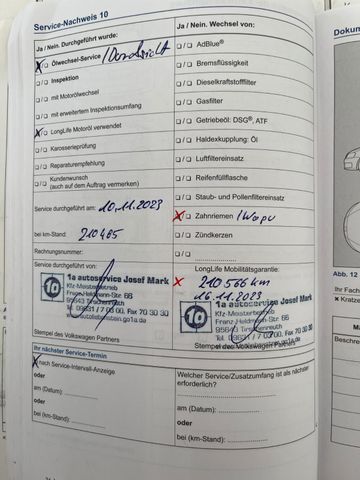 Service-Nachweis 10
Ja / Nein. Durchgeführt wurde:
Ölwechsel-Service / Durchsicht
Inspektion
mit Motorölwechsel
mit erweitertem Inspektionsumfang
LongLife Motoröl verwendet
Karosserieprüfung
Reparaturempfehlung
Kundenwunsch
(auch auf dem Auftrag vermerken)
Service durchgeführt am: 10.11.2023
bei km-Stand: 210465
Rechnungsnummer:
Service durchgeführt von:
1a autoservice Josef Mark
Kfz-Meisterbetrieb
Franz-Heldmann-Str. 66
95643 Tirschenreuth
Fax 70 30 30
Stempel des Volkswagen Partners
Ja / Nein. Wechsel von:
AdBlue®
Bremsflüssigkeit
Dieselkraftstofffilter
Gasfilter
Getriebeöl: DSG®, ATF
Haldexkupplung: Öl
Luftfiltereinsatz
Reifenfüllflasche
Staub- und Pollenfiltereinsatz
Zahnriemen / Wapu
Zündkerzen
LongLife Mobilitätsgarantie:
210 566 km
16.11.2023
1a autoservice Josef Mark
Kfz-Meisterbetrieb
Franz-Heldmann-Str. 66
95643 Tirschenreuth
Fax 70 30 30
Stempel des Volkswagen Partners
Ihr nächster Service-Termin
nach Service-Intervall-Anzeige
oder
am (Datum)
oder
bei (km-Stand):
Welcher Service/Zusatzumfang ist als nächster
erforderlich?
oder
am (Datum):
oder
bei (km-Stand):
Dokum
Abb. 12
Ihr Fach
Kratze
Beschre